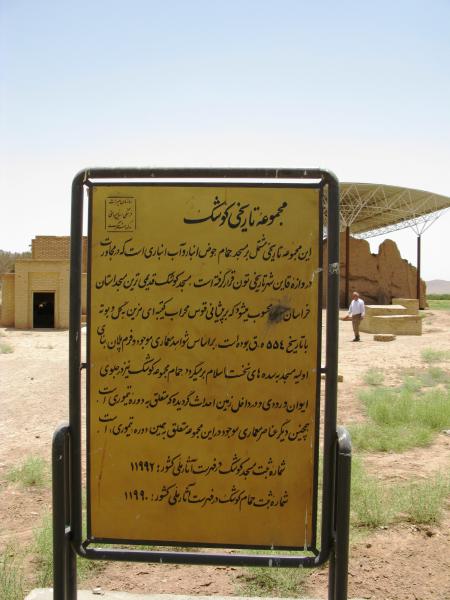 مجموعه تاریخی کوشک
این مجموعه تاریخی مشتمل بر مسجد حمام حوض انبار و آب انباری است که در مجاورت
دروازه قاین شهر تاریخی تون قرار گرفته است. مسجد کوشک قدیمی ترین مسجد استان
خراسان محسوب میشود که بر پیشانی قوس محراب کتیبه ای مزین به گل و بوته
با تاریخ ۵۵۴ ه.ق بوده است. بر اساس شواهد معماری موجود و فرم پلان بنای
اولیه مسجد به سده های نخست اسلام بر میگردد حمام مجموعه کوشک نیز در جلوی
ایوان ورودی و در داخل زمین احداث گردیده که متعلق به دوره تیموری است.
همچنین دیگر عناصر معماری موجود در این مجموعه متعلق به همین دوره تیموری است.
شماره ثبت مسجد کوشک در فهرست آثار ملی کشور: ۱۱۹۹۲
شماره ثبت حمام کوشک در فهرست آثار ملی کشور: ۱۱۹۹۰